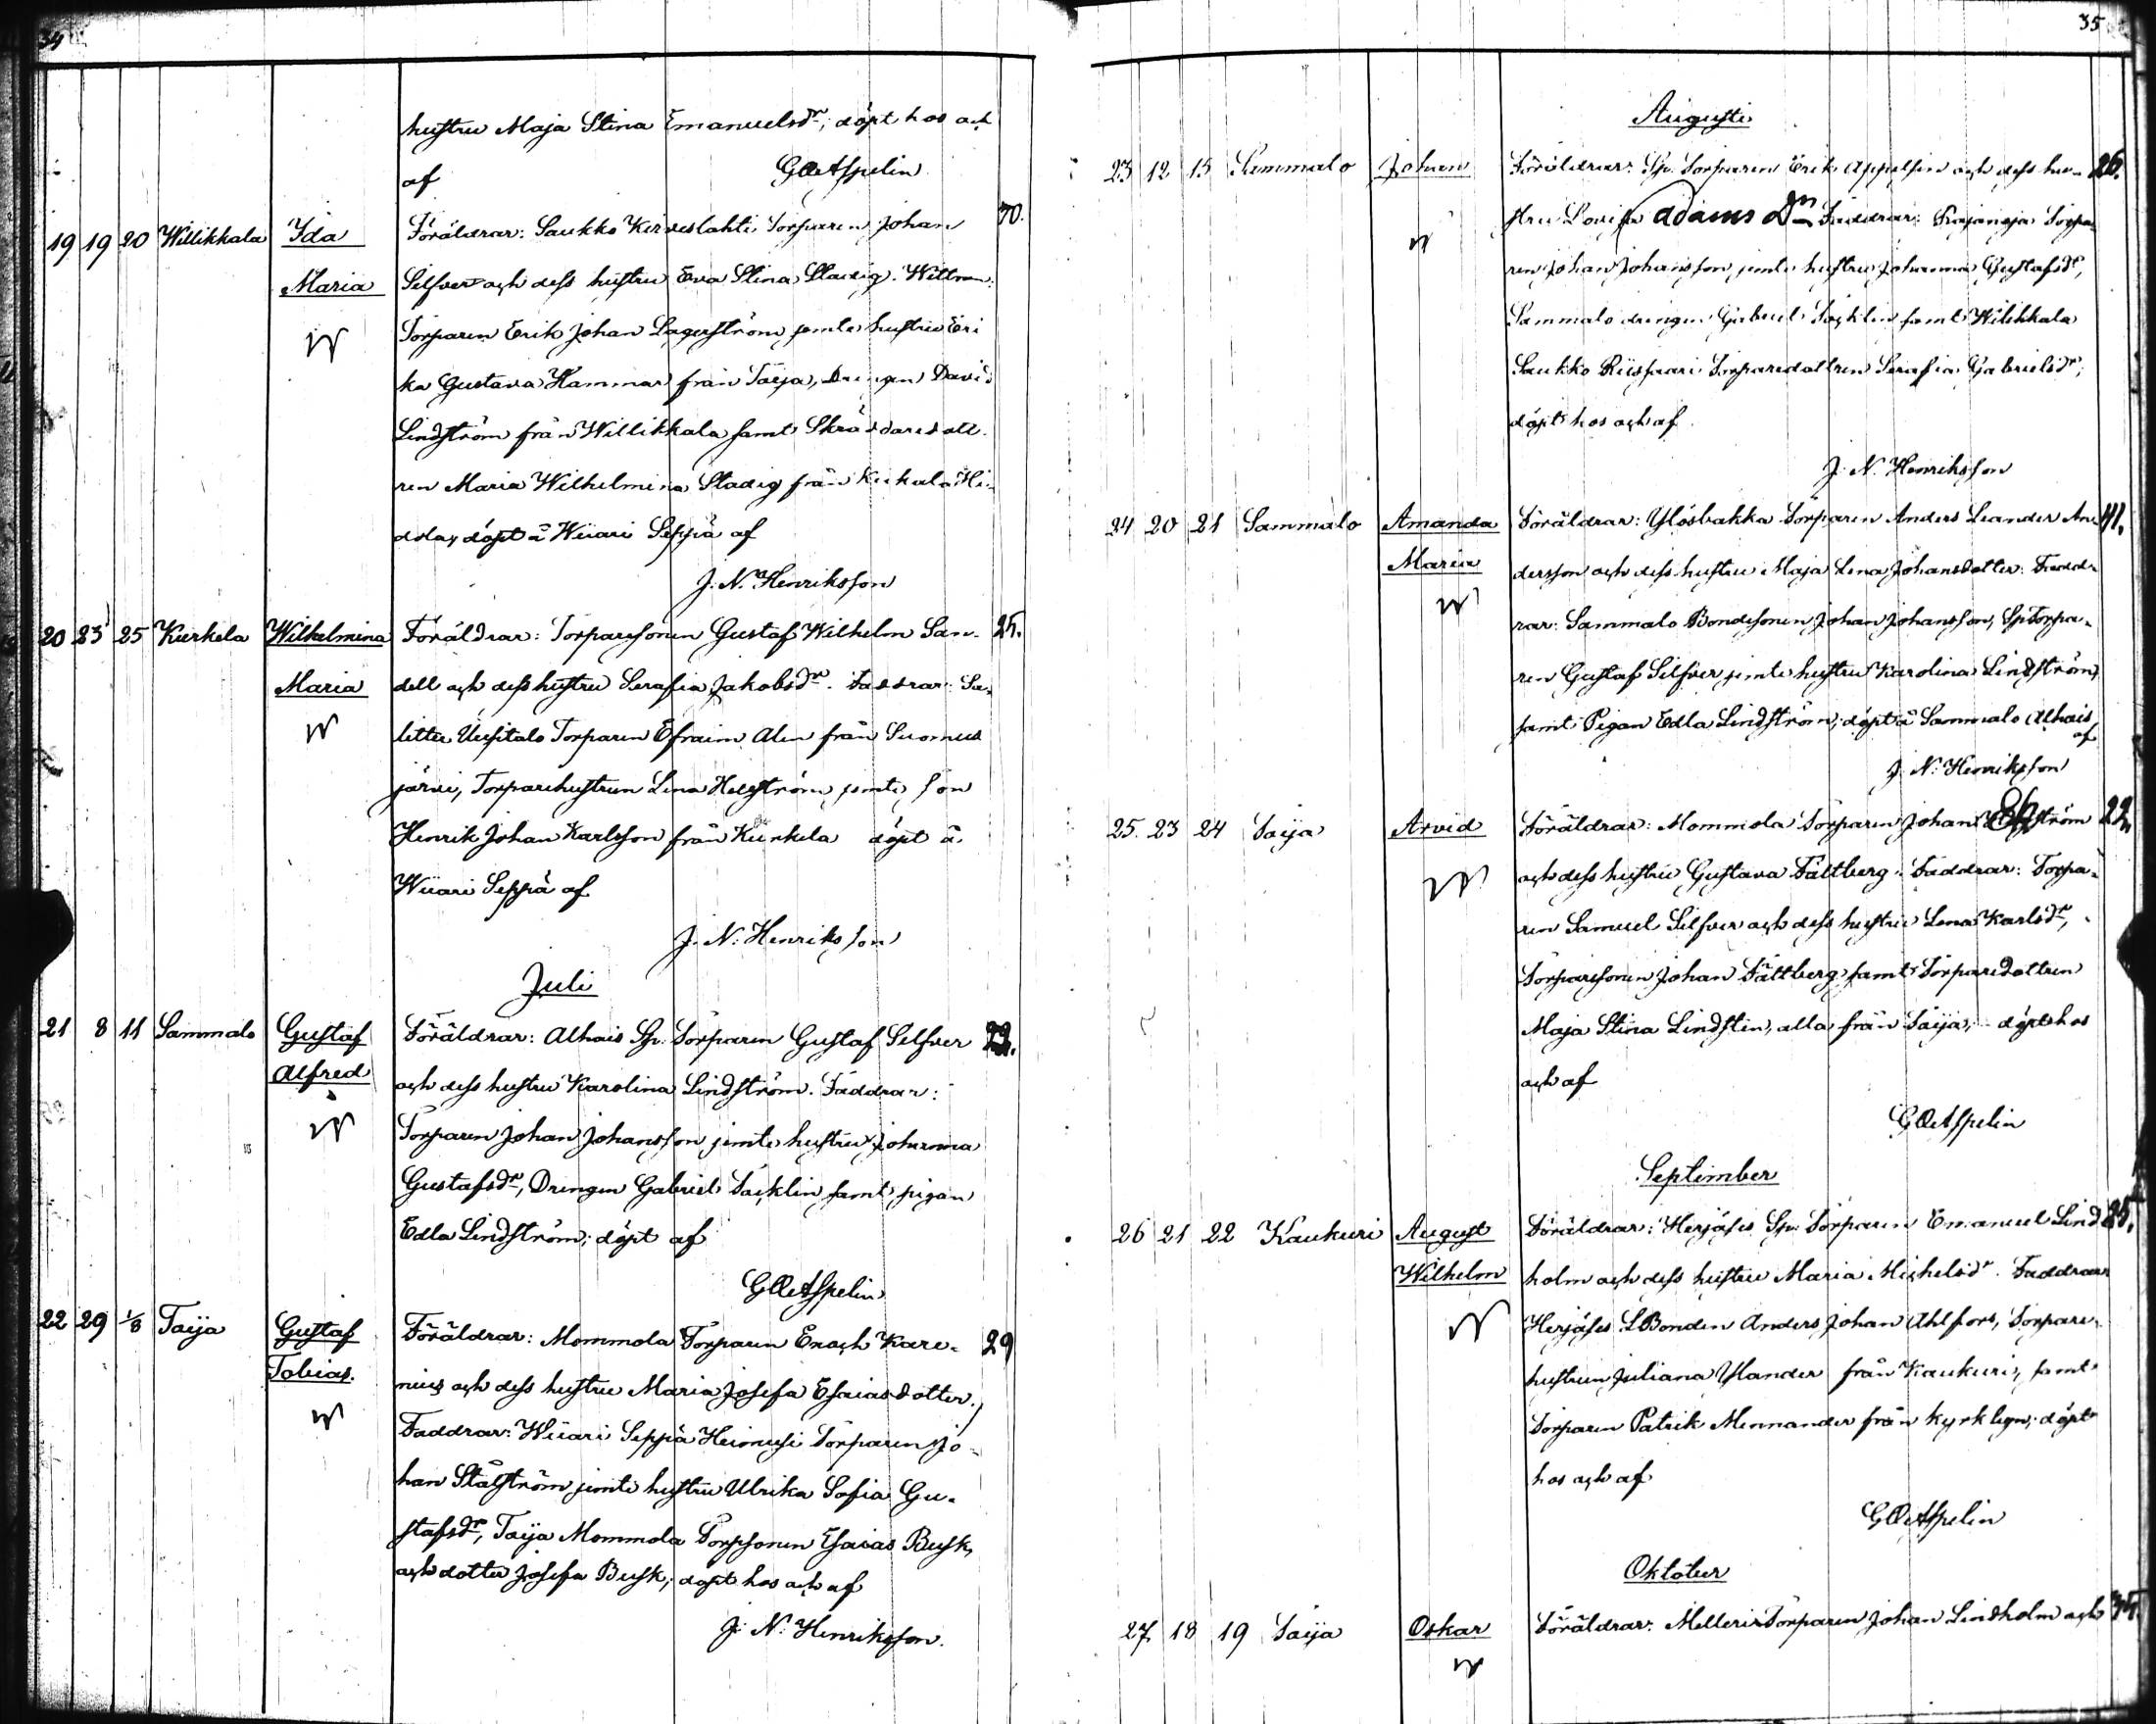 34
hustru Maja Stina Emanuelsdr; döpt hos och
af
G Aspelin
19 19 20 Willikkala Ida Föräldrar: Saukko Kirveslahti Torparen Johan 30.
Maria Silfver och dess hustru Eva Stina Stadig. Wittnen:
Torparen Erik Johan Lagerström jemte hustru Eri
ka Gustava Hammar från Taija, Drengen David
Lindström från Willikkala samt Skräddaredott.
ren Maria Wilhelmina Stadig från Kiikala Hi
dola, döpt å Wiiari Seppä af
J. N. Henriksson
20 23 25 Kurkela Wilhelmina Föräldrar: Torparesonen Gustaf Wilhelm San- 25.
Maria dell och dess hustru Serafia Jakobsdr. Faddrar: Sa
littu Uusitalo Torparen Efraim Alen från Suomus
järvi, Torparehustrun Lena Helgström jemte son
Henrik Johan Karlsson från Kurkela döpt å
Wiiari Seppä af
J. N. Henriksson
Juli
21 8 11 Sammalo Gustaf Föräldrar: Alhais Sp. Torparen Gustaf Silfver 23.
Alfred och dess hustru Karolina Lindström. Faddrar:
Torparen Johan Johansson jemte hustru Johanna
Gustafsdr, Drengen Gabriel Säcklin samt pigan
Edla Lindström; döpt af
G Aspelin
22 29 1/8 Taija Gustaf Föräldrar: Mommola Torparen Enoch Kare- 29
Tobias. nius och dess hustru Maria Josefa Esaiasdotter.
Faddrar: Wiiari Seppä Heinusi Torparen Jo-
han Stålström jemte hustru Ulrika Sofia Gu-
stafsdr, Taija Mommola Torpsonen Esaias Busk,
och dotter Josefa Busk; döpt hos och af
J. N. Henriksson.
35
Augusti
23 12 15 Sammalo Johan Föräldrar: Sp. Torparen Erik Appelsin och dess hu- 26.
stru Lovisa Adams dn Faddrar: Rajaoja Torpa
ren Johan Johansson jemte hustru Johanna Gustafsdr,
Sammalo drengen Gabriel Säcklin samt Willikkala
Saukko Riispaari Torparedottren Serafia Gabrielsdr;
döpt hos och af
J. N. Henriksson
24 20 21 Sammalo Amanda Föräldrar: Ylösbakka Torparen Anders Leander An- 41.
Maria dersson och dess hustru Maja Lena Johansdotter. Fadd-
rar: Sammalo Bondesonen Johan Johansson, Sp Torpa-
ren Gustaf Silfver jemte hustru Karolina Lindström
samt Pigan Edla Lindström; döpt å Sammalo Alhais
af
J. N. Henriksson
25. 23 24 Taija Arvid Föräldrar: Mommola Torparen Johan ström 22
och dess hustru Gustava Fältberg. Faddrar: Torpa-
ren Samuel Silfver och dess hustru Lena Karlsdr,
Torparesonen Johan Fältberg samt Torparedottren
Maja Stina Lindstin, alla från Taija; döpt hos
och af
G Aspelin
September
26 21 22 Kaukuri August Föräldrar: Herjäses Sp. Torparen Emanuel Lind 25.
Wilhelm holm och dess hustru Maria Michelsdr. Faddrar
Herjäses LBonden Anders Johan Ahlfors, Torpare-
hustrun Juliana Ylander från Kaukuri, samt
Torparen Patrik Mennander från kyrkbyn; döpt
hos och af
G Aspelin
Oktober
27 18 19 Taija Oskar Föräldrar: Melleri Torparen Johan Lindholm och 35.